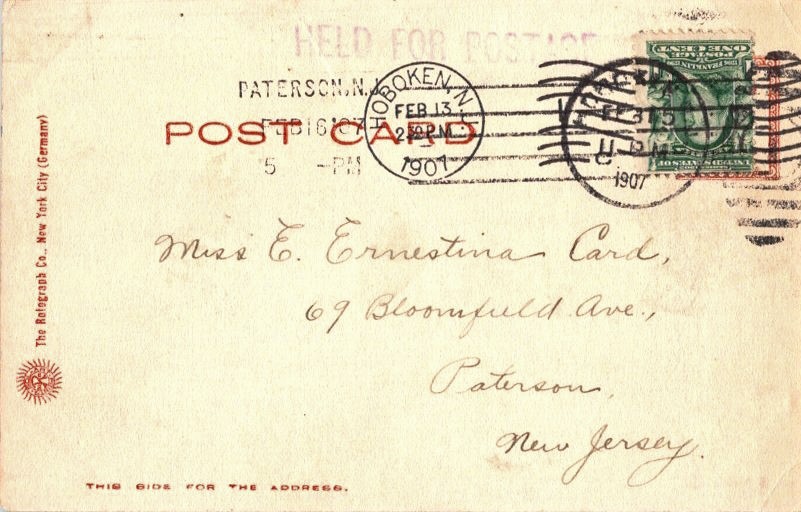 HELD FOR POSTAGE
PATERSON, N.J.
FEB 16 '07
5 -PM
HOBOKEN, N.J.
FEB 13
2 30 P.M.
1907
ONE CENT
FEB 15
11 PM
1907
POST CARD
Miss E. Ernestina Card,
69 Bloomfield Ave.,
Paterson,
New Jersey.
The Rotograph Co., New York City (Germany)
THIS SIDE FOR THE ADDRESS.